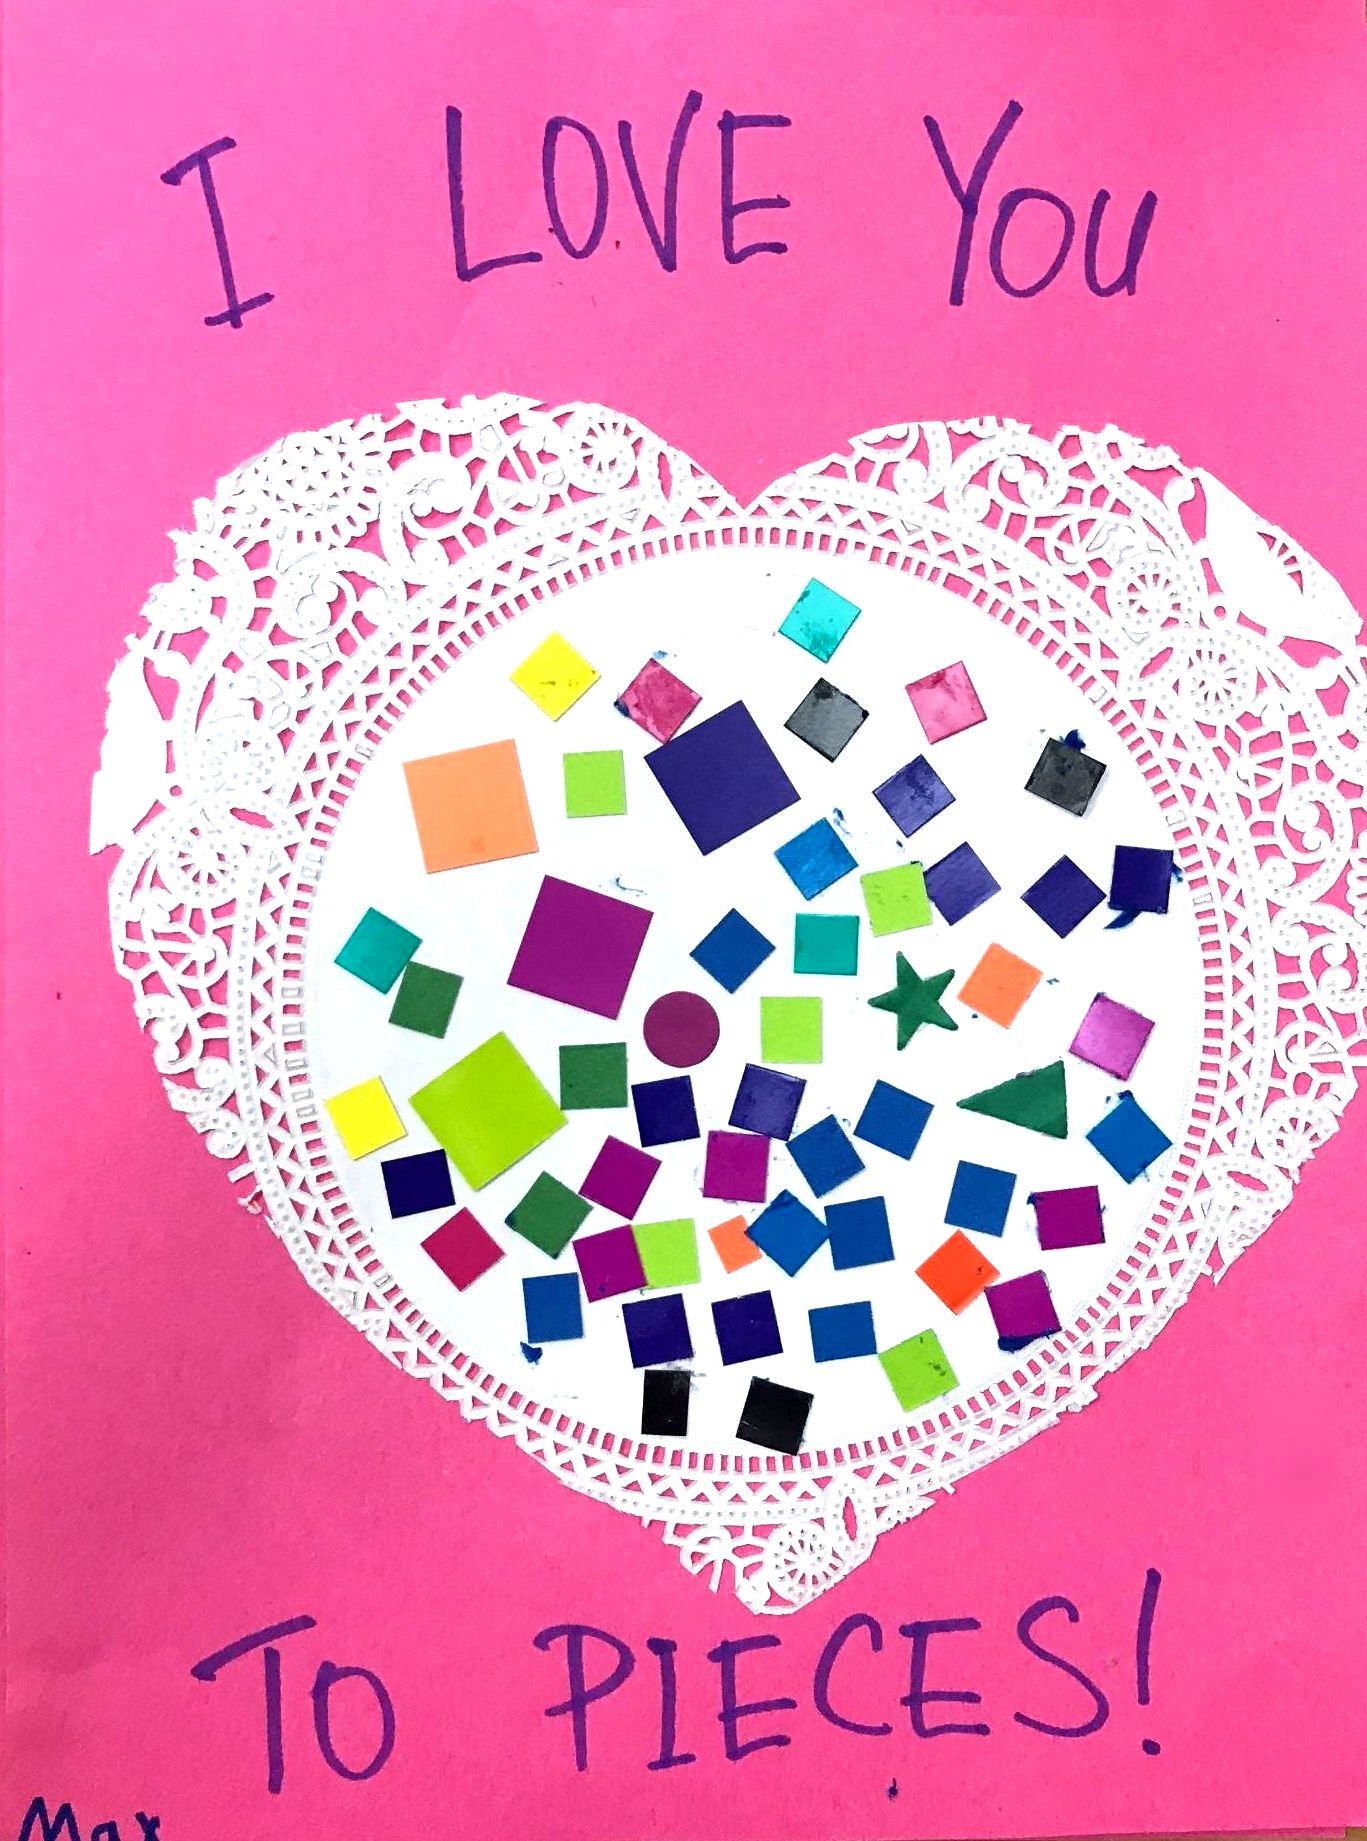 I LOVE YOU
TO PIECES!
Max